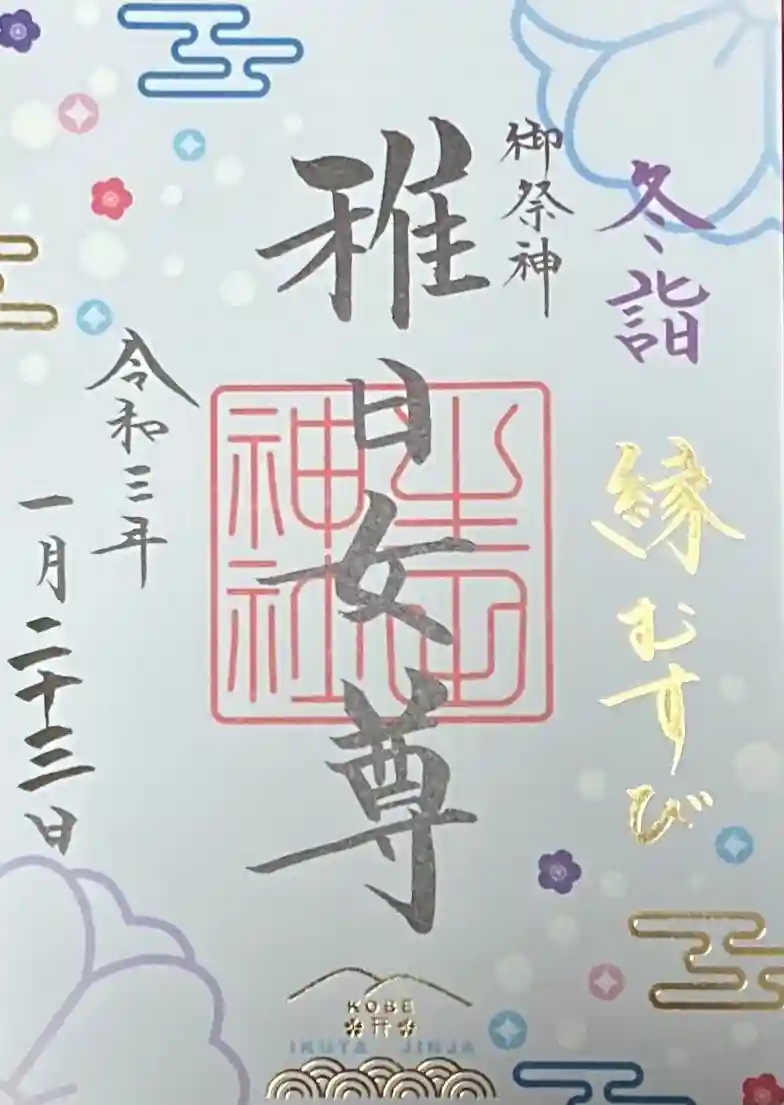 冬詣 縁むすび
御祭神
稚日女尊
生田神社
令和三年
一月二十三日
KOBE
IKUTA JINJA